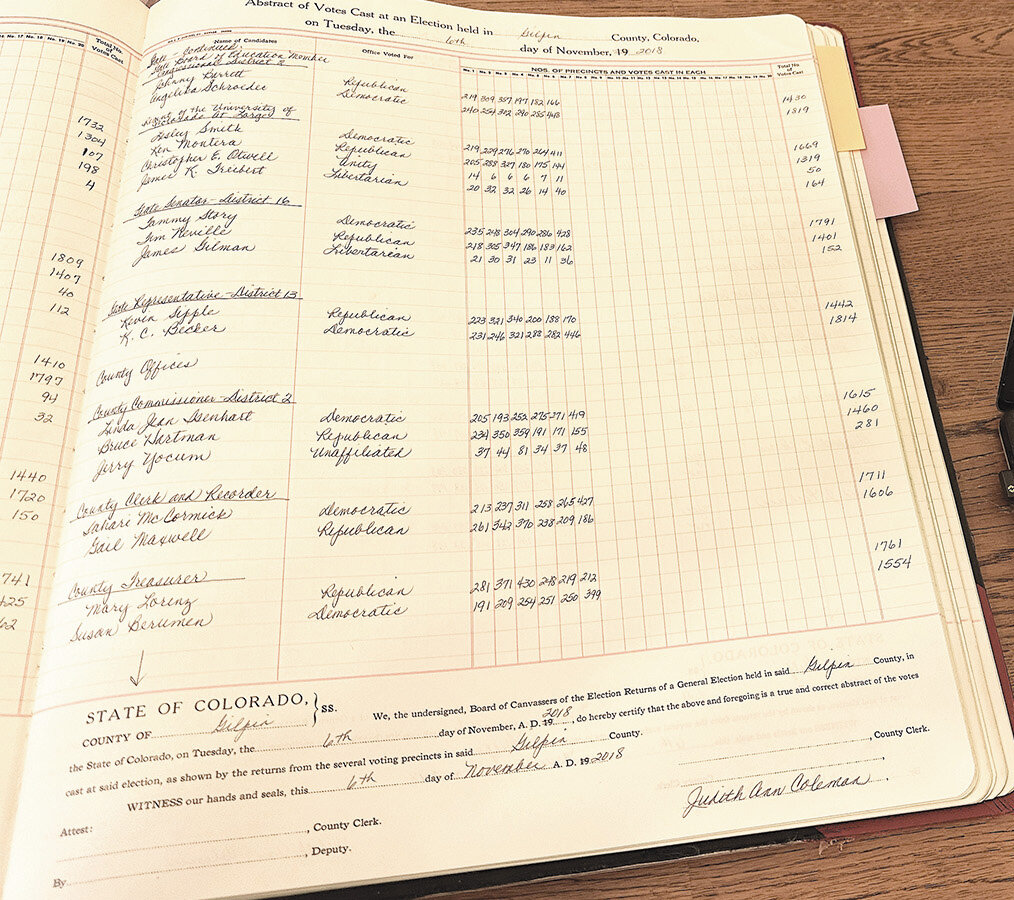 Total No. of Votes Cast
1732
1304
107
198
4
1809
1407
40
112
1410
1797
94
32
1440
1720
150
741
425
62
Abstract of Votes Cast at an Election held in Gilpin County, Colorado,
on Tuesday, the 6th day of November, 19 2018
Name of Candidates Office Voted For NOS. OF PRECINCTS AND VOTES CAST IN EACH Total No. of Votes Cast
State Continued:
State Board of Education Member
Congressional District 2
Johnny Barrett Republican 219 309 357 197 182 166 1430
Angelika Schroeder Democratic 240 254 302 290 285 448 1819
of the University of
Colorado At Large
Lesley Smith Democratic 219 229 276 270 264 411 1669
Ken Montera Republican 205 288 327 180 175 144 1319
Christopher E. Otwell Unity 14 6 6 6 7 11 50
James K. Treibert Libertarian 20 32 32 26 14 40 164
State Senator - District 16
Tammy Story Democratic 235 248 304 290 286 428 1791
Tim Neville Republican 218 305 347 186 183 162 1401
James Gilman Libertarian 21 30 31 23 11 36 152
State Representative - District 13
Kevin Sipple Republican 223 321 340 200 188 170 1442
K. C. Becker Democratic 231 246 321 288 282 446 1814
County Offices
County Comissioner - District 2
Linda Jean Isenhart Democratic 205 193 252 275 271 419 1615
Bruce Hartman Republican 234 350 359 191 171 155 1460
Jerry Yocum Unaffiliated 37 44 81 34 37 48 281
County Clerk and Recorder
Sahari McCormick Democratic 213 237 311 258 265 427 1711
Gail Maxwell Republican 261 342 370 238 209 186 1606
County Treasurer
Mary Lorenz Republican 281 371 430 248 219 212 1761
Susan Berumen Democratic 191 209 254 251 250 399 1554
STATE OF COLORADO, } SS.
COUNTY OF Gilpin
We, the undersigned, Board of Canvassers of the Election Returns of a General Election held in said Gilpin County, in
the State of Colorado, on Tuesday, the 6th day of November, A. D. 19 2018, do hereby certify that the above and foregoing is a true and correct abstract of the votes
cast at said election, as shown by the returns from the several voting precincts in said Gilpin County.
WITNESS our hands and seals, this 6th day of November A. D. 19 2018
, County Clerk.
Judith Ann Coleman
Attest:
, County Clerk.
By , Deputy.